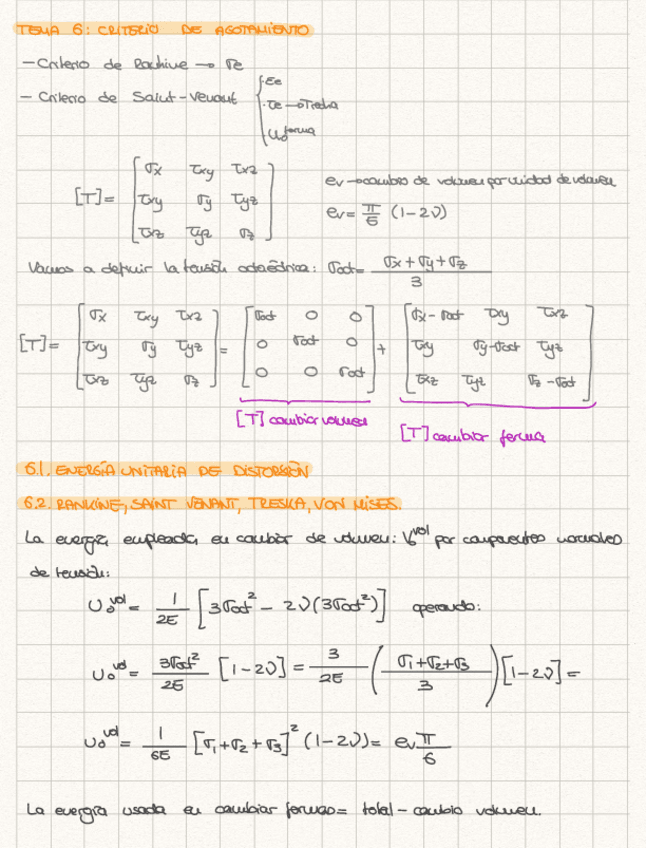 TEMA 6: CRITERIO DE AGOTAMIENTO
- Criterio de Rankine → σe
- Criterio de Saint-Venant { · εe
· τe → Treska
· U₀ forma
[T] = [ σx τxy τxz
τxy σy τyz
τxz τyz σz ]
ev → cambios de volumen por unidad de volumen
ev = π/6 (1-2ν)
Vamos a definir la tensión octaédrica: σoct = (σx + σy + σz)/3
[T] = [ σx τxy τxz ; τxy σy τyz ; τxz τyz σz ] = [ σoct 0 0 ; 0 σoct 0 ; 0 0 σoct ] + [ σx - σoct τxy τxz ; τxy σy - σoct τyz ; τxz τyz σz - σoct ]
[T] cambiar volumen
[T] cambiar forma
6.1. ENERGÍA UNITARIA DE DISTORSIÓN
6.2. RANKINE, SAINT VENANT, TRESKA, VON MISES.
La energía empleada en cambiar de volumen: U₀^vol por componentes normales
de tensión:
U₀^vol = 1/2E [3σoct² - 2ν(3σoct²)] operando:
U₀^vol = 3σoct²/2E [1-2ν] = 3/2E ((σ1+σ2+σ3)/3) [1-2ν] =
U₀^vol = 1/6E [σ1+σ2+σ3]² (1-2ν) = ev π/6
La energía usada en cambiar formas = total - cambio volumen.